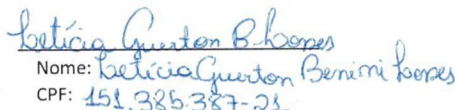 Letícia Guerton B. Lopes
Nome: Letícia Guerton Benini Lopes
CPF: 151.385.387-21